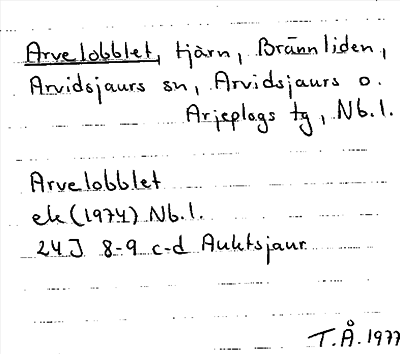 Arvelobblet, tjärn, Brännliden,
Arvidsjaurs sn, Arvidsjaurs o.
Arjeplogs tg, Nb.l.
Arvelobblet
ek (1974) Nb.l.
24J 8-9 c-d Auktsjaur
T.Å. 1977